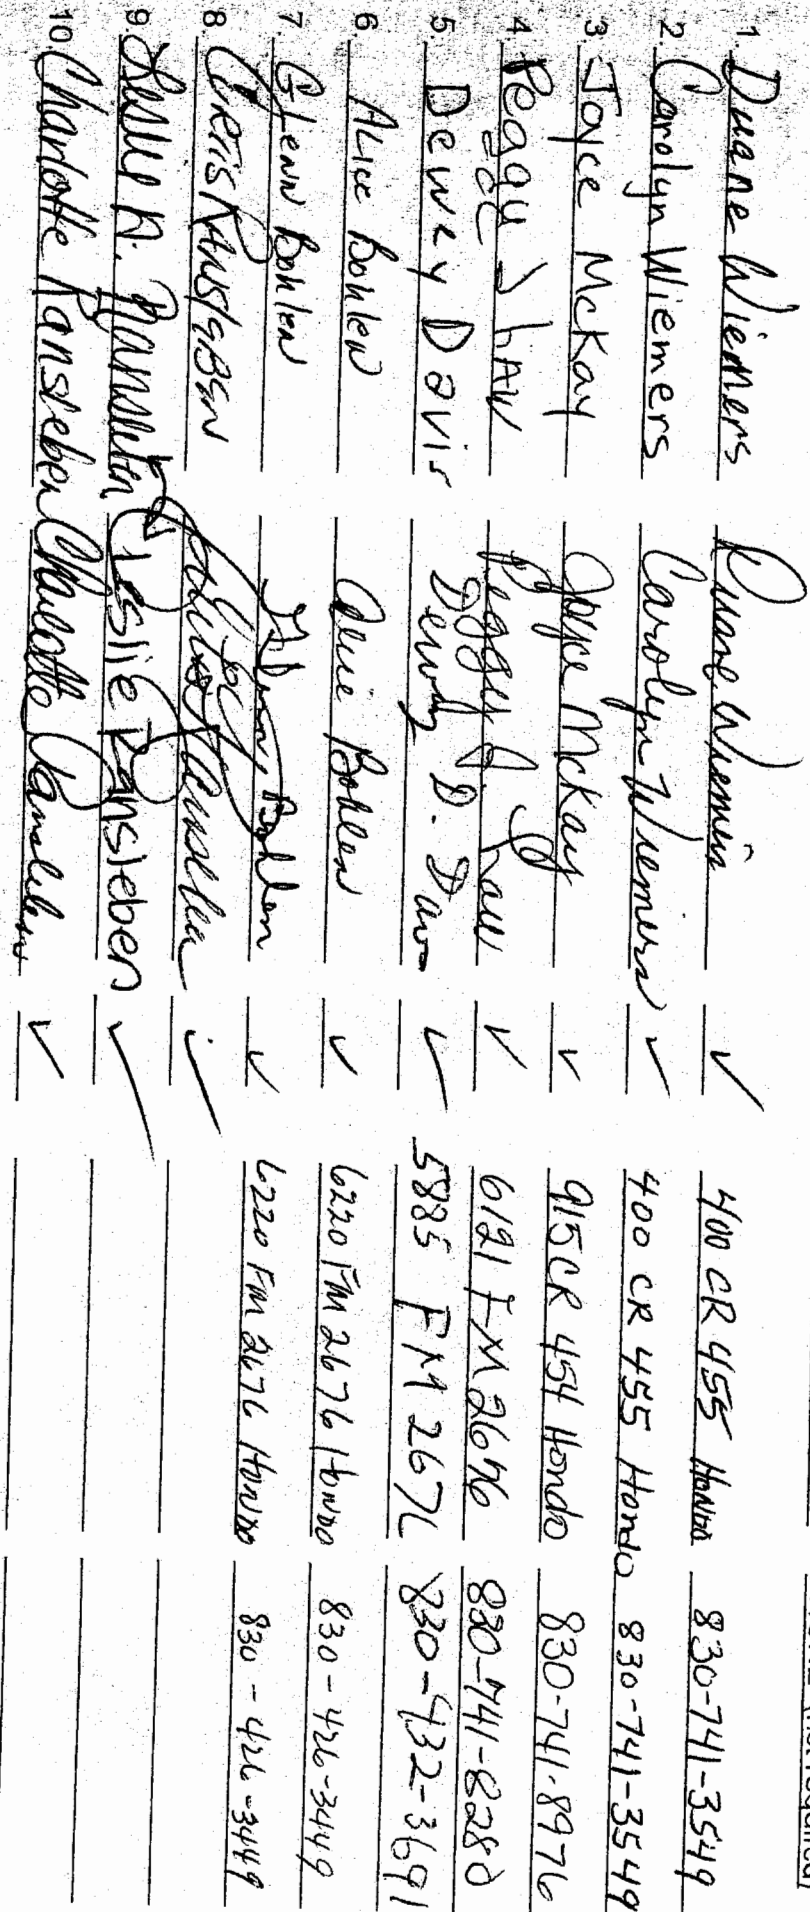 (not required)
1. Duane Wiemers Duane Wiemers ✓ 400 CR 455 Hondo 830-741-3549
2. Carolyn Wiemers Carolyn Wiemers ✓ 400 CR 455 Hondo 830-741-3549
3. Joyce McKay Joyce McKay ✓ 915 CR 454 Hondo 830-741-8976
4. Peggy J Law Peggy J. Law ✓ 6121 FM 2676 830-741-8280
5. Dewey Davis Dewey D. Davis ✓ 5885 FM 2676 830-432-3691
6. Alice Bohlen Alice Bohlen ✓ 6220 FM 2676 Hondo 830-426-3449
7. Glenn Bohlen Bohlen ✓ 6220 FM 2676 Hondo 830-426-3449
8. Chris Ransleben ✓
9. Leslie K. Ransleben Leslie Ransleben ✓
10. Charlotte Ransleben Charlotte Ransleben ✓